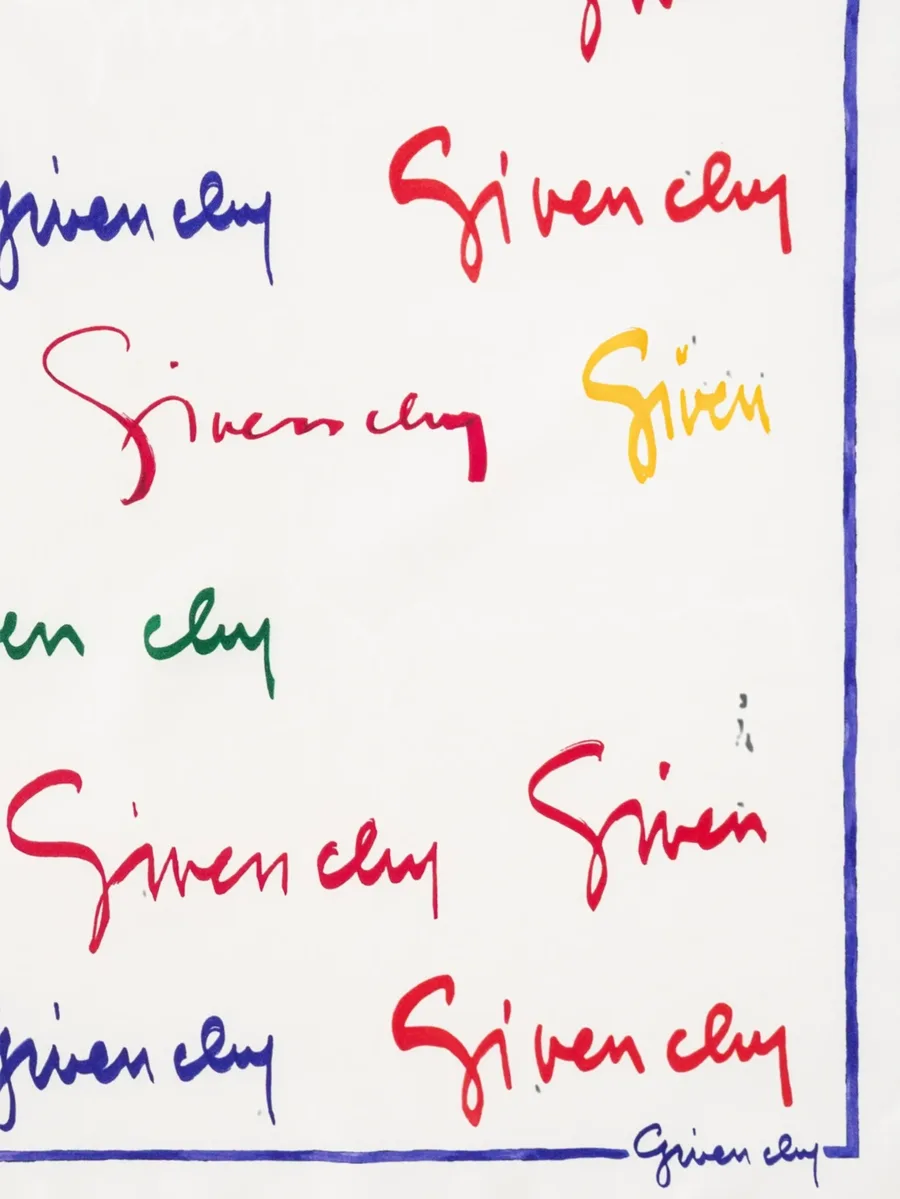 Givenchy Givenchy
Givenchy Given
en chy
Givenchy Given
Givenchy Givenchy
Givenchy